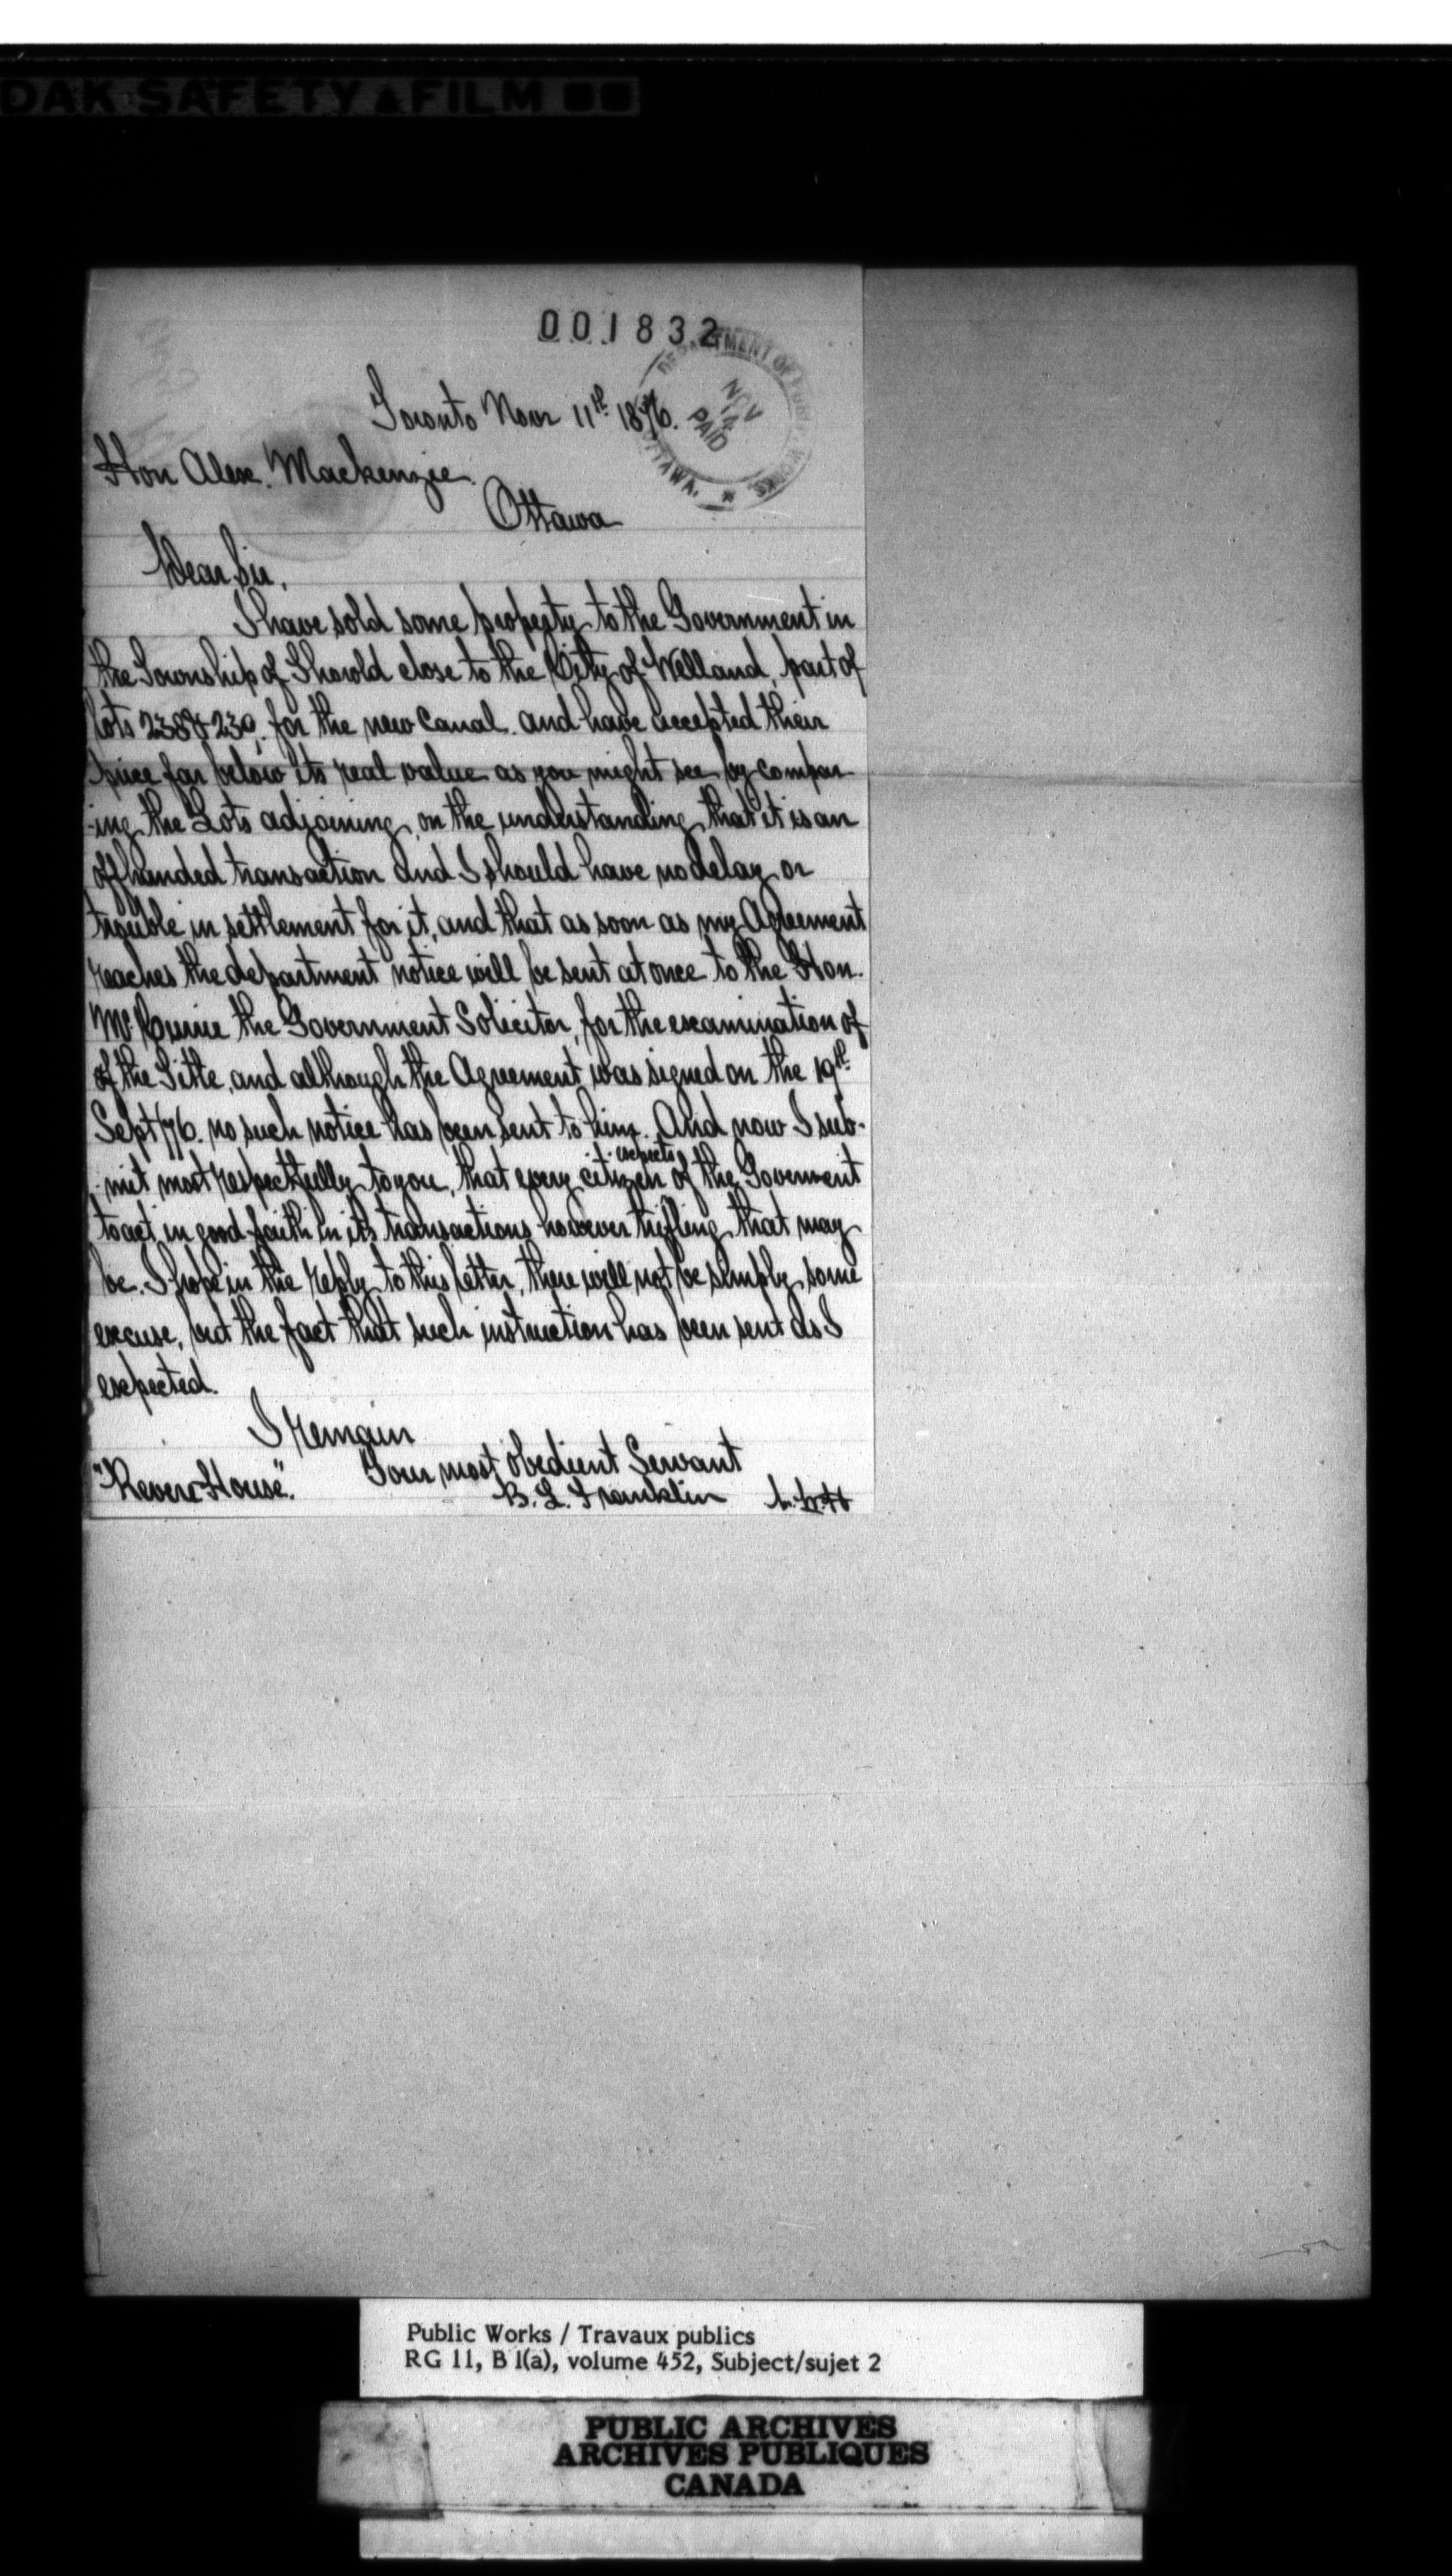 DAK SAFETY ▲ FILM
001832
DEPARTMENT OF PUBLIC WORKS OTTAWA. *
NOV
14
PAID
Toronto Novr 11th 1876.
Hon Alex. Mackenzie.
Ottawa
Dear Sir,
I have sold some property to the Government in
the Township of Thorold close to the City of Welland, part of
lots 238 & 239, for the new Canal. and have accepted their
price far below its real value as you might see by compar-
-ing the Lots adjoining, on the understanding that it is an
offhanded transaction and I should have no delay or
trouble in settlement for it, and that as soon as my Agreement
reaches the department notice will be sent at once to the Hon.
Mr Currie the Government Solicitor, for the examination of
of the Title, and although the Agreement was signed on the 19th
Sept 76. no such notice has been sent to him. And now I sub-
-mit most respectfully to you, that every citizen expects of the Goverment
to act in good faith in its transactions however trifling that may
be. I hope in the reply to this letter, there will not be simply some
excuse, but the fact that such instruction has been sent as I
expected.
I Remain
Your most obedient Servant
"Revere House".
B. L. Franklin
Public Works / Travaux publics
RG 11, B 1(a), volume 452, Subject/sujet 2
PUBLIC ARCHIVES
ARCHIVES PUBLIQUES
CANADA